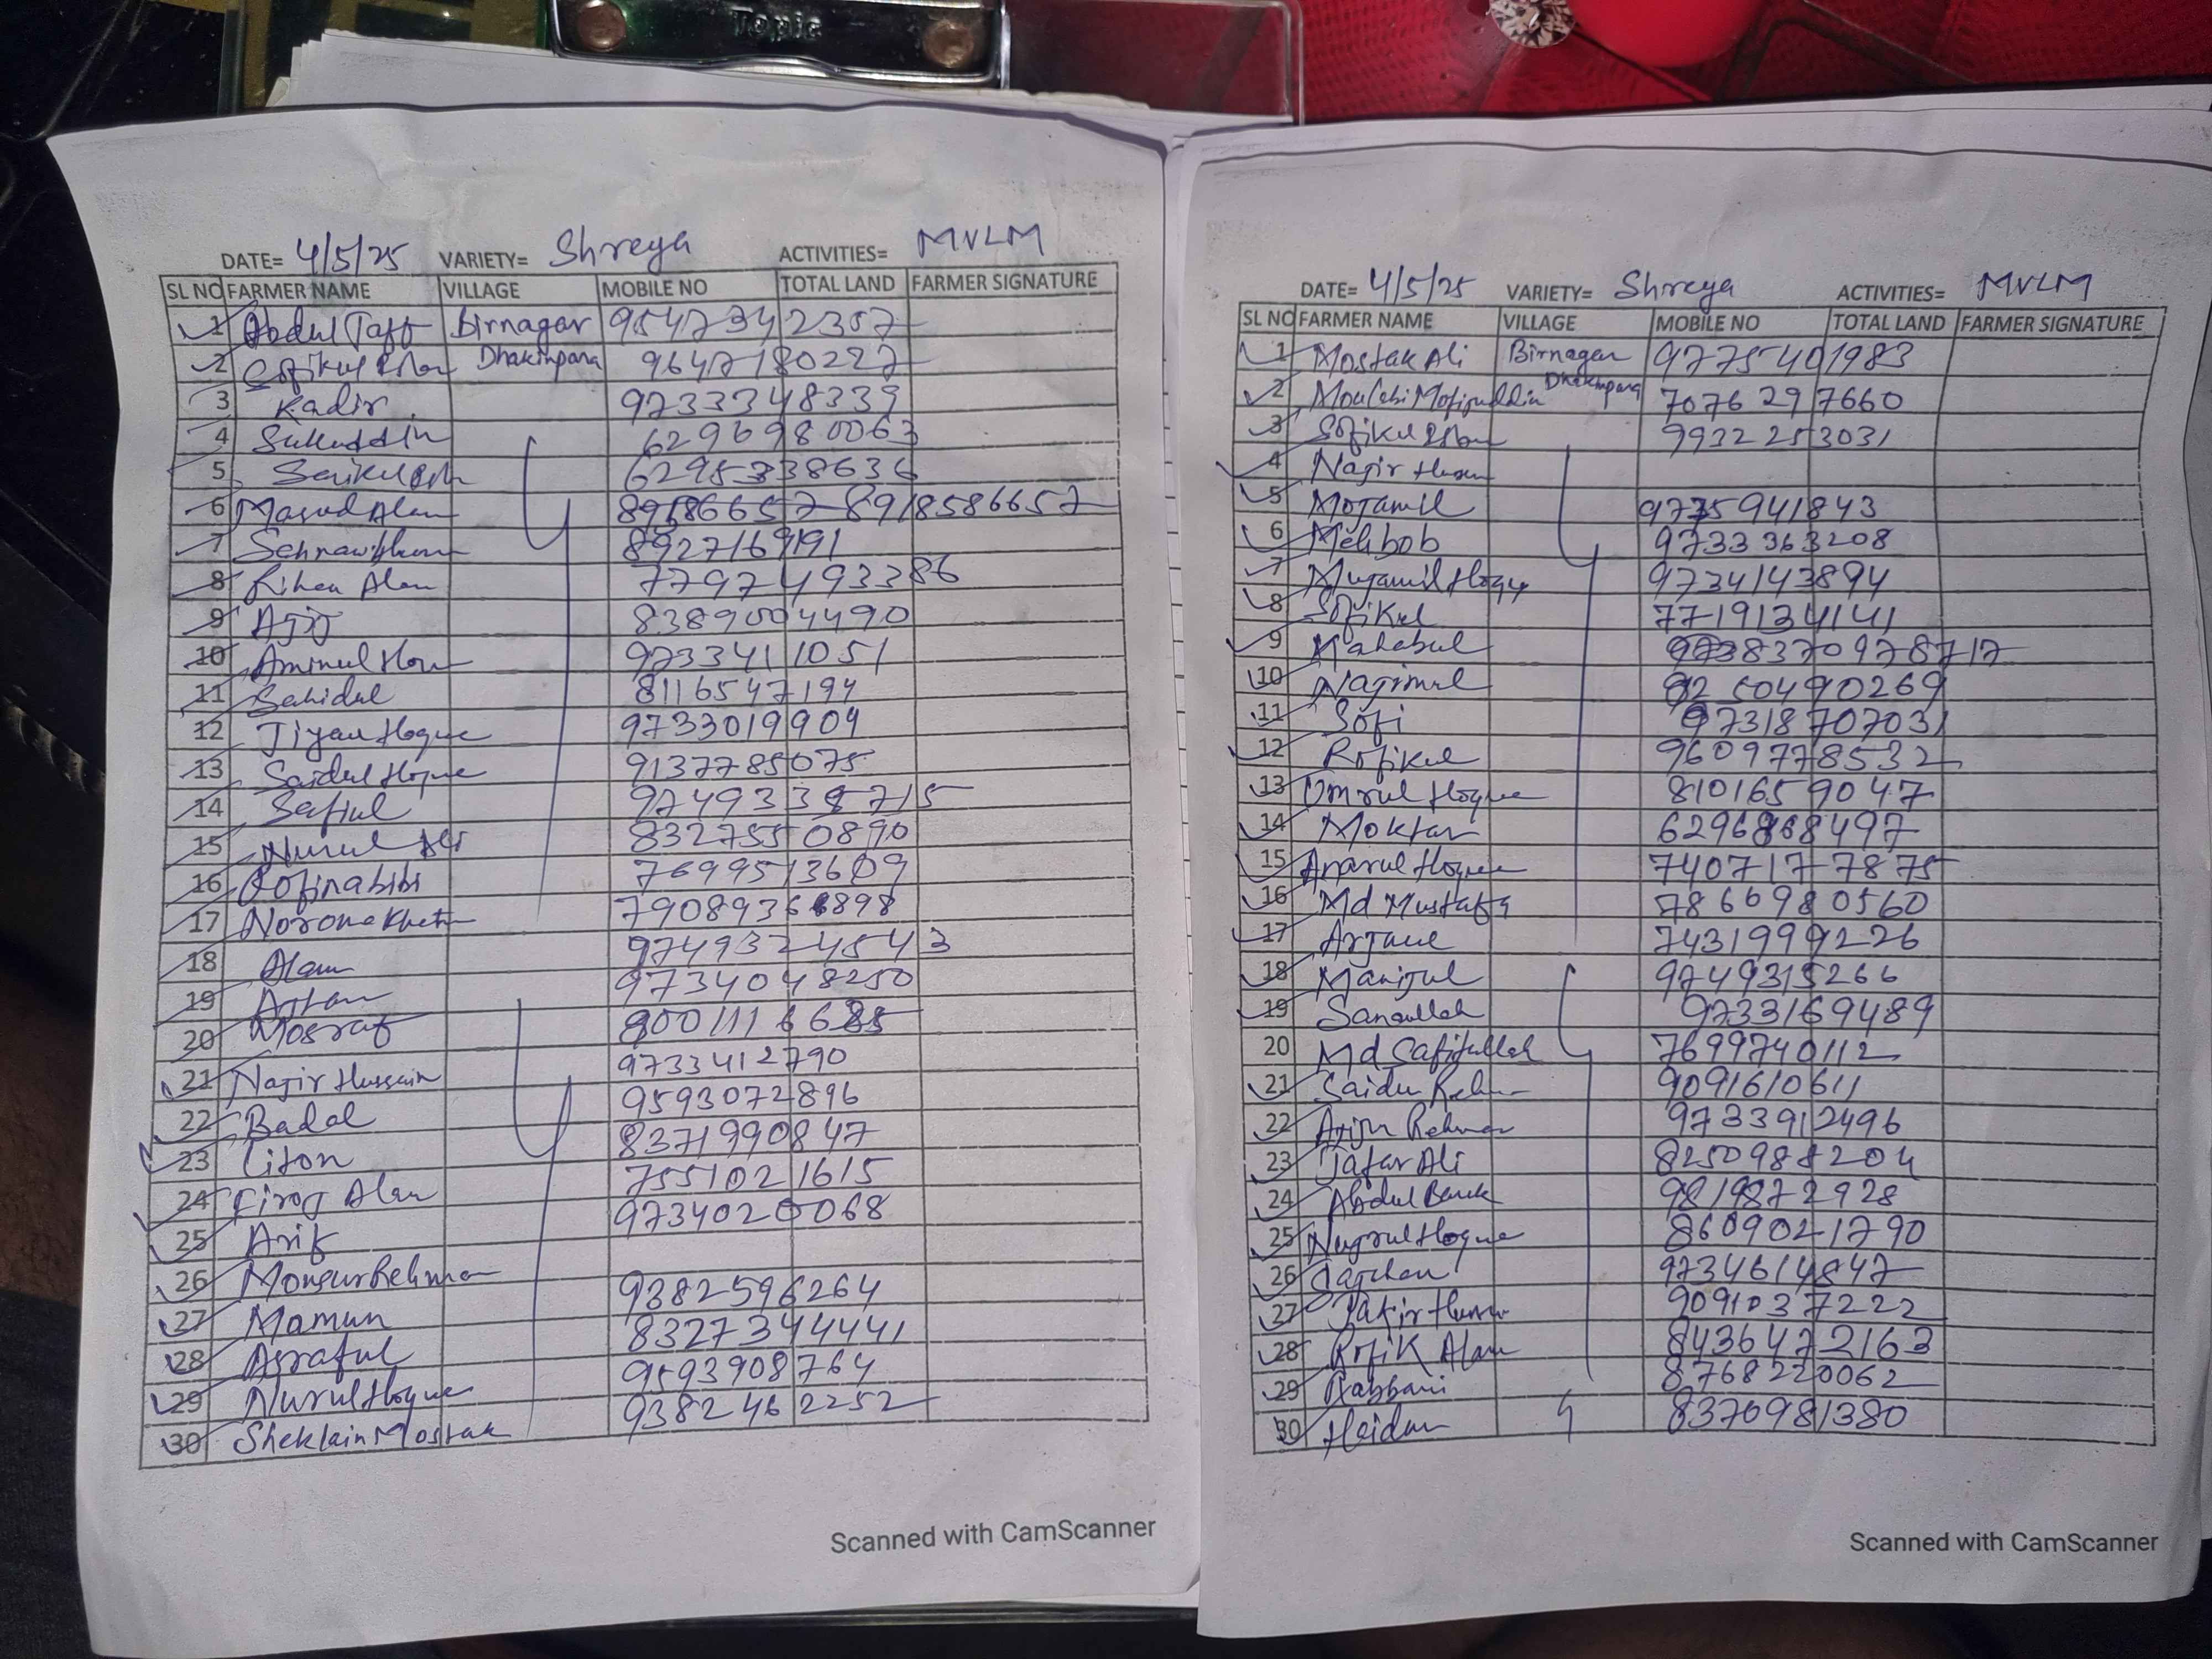 Topic
DATE= 4/5/25 VARIETY= Shreya ACTIVITIES= MVLM
SL NO FARMER NAME VILLAGE MOBILE NO TOTAL LAND FARMER SIGNATURE
1 Abdul Birnagar 9547342357
2 Sofikul Islam Dhakinpara 9647180227
3 Kadir 9733348339
4 Sukuddin 6296980063
5 62953338636
6 Masud Alam 8918586657
7 8927169191
8 Rihen Alam 7797493386
9 Ajij 8389004490
10 Aminul 9733411051
11 Sahidul 8116547194
12 Jiyau Hoque 9733019904
13 Saidul Hoque 9137785075
14 Safiul 9749338715
15 Nurul Ali 8327550890
16 Rofinabibi 7699513609
17 Norona Khatn 7908936898
18 Alam 9749324543
19 9734048250
20 Mosraf
21 Najir Hussain 9733412790
22 Badal 9593072896
23 Liton 8371990847
24 Firoj Alam 7551021615
25 Arif 9734020068
26 Monsur Rehman
27 Mamun 9382596264
28 Asraful 8327344441
29 Nurul Hoque 9593908764
30 Sheklain Mostak 9382462252
Scanned with CamScanner
DATE= 4/5/25 VARIETY= Shreya ACTIVITIES= MVLM
SL NO FARMER NAME VILLAGE MOBILE NO TOTAL LAND FARMER SIGNATURE
1 Mostak Ali Birnagar 9775401983
2 Moulabi Mofijuddin Dhakinpara 7076297660
3 Sofikul Islam 9932253031
4 Najir Husen
5 Mojamil 9735941843
6 Mehbob 9733363208
7 Mujamil Hoque 9734143894
8 Sofikul 7719134141
9 Mahabul
10 Najimul
11 Sofi 97318707031
12 Rofikul 9609778532
13 Omrul Hoque 8101659047
14 Moktar 6296868497
15 Anarul Hoque 7407177875
16 Md Mustafa 7866980560
17 Arjaul 7431999226
18 Manijul 9749315266
19 Sanaullah 9733169489
20 Md Safijullah 7699740112
21 Saidur Rehman 9091610611
22 Rehman 9733912496
23 Jafar Ali 8250988204
24 Abdul Barek 9819872928
25 Nujrul Hoque 8609021790
26 9734614847
27 Jakir Husen 9091037222
28 Rofik Alam 8436472163
29 Rabbani 8768220062
30 Heidar 8370981380
Scanned with CamScanner